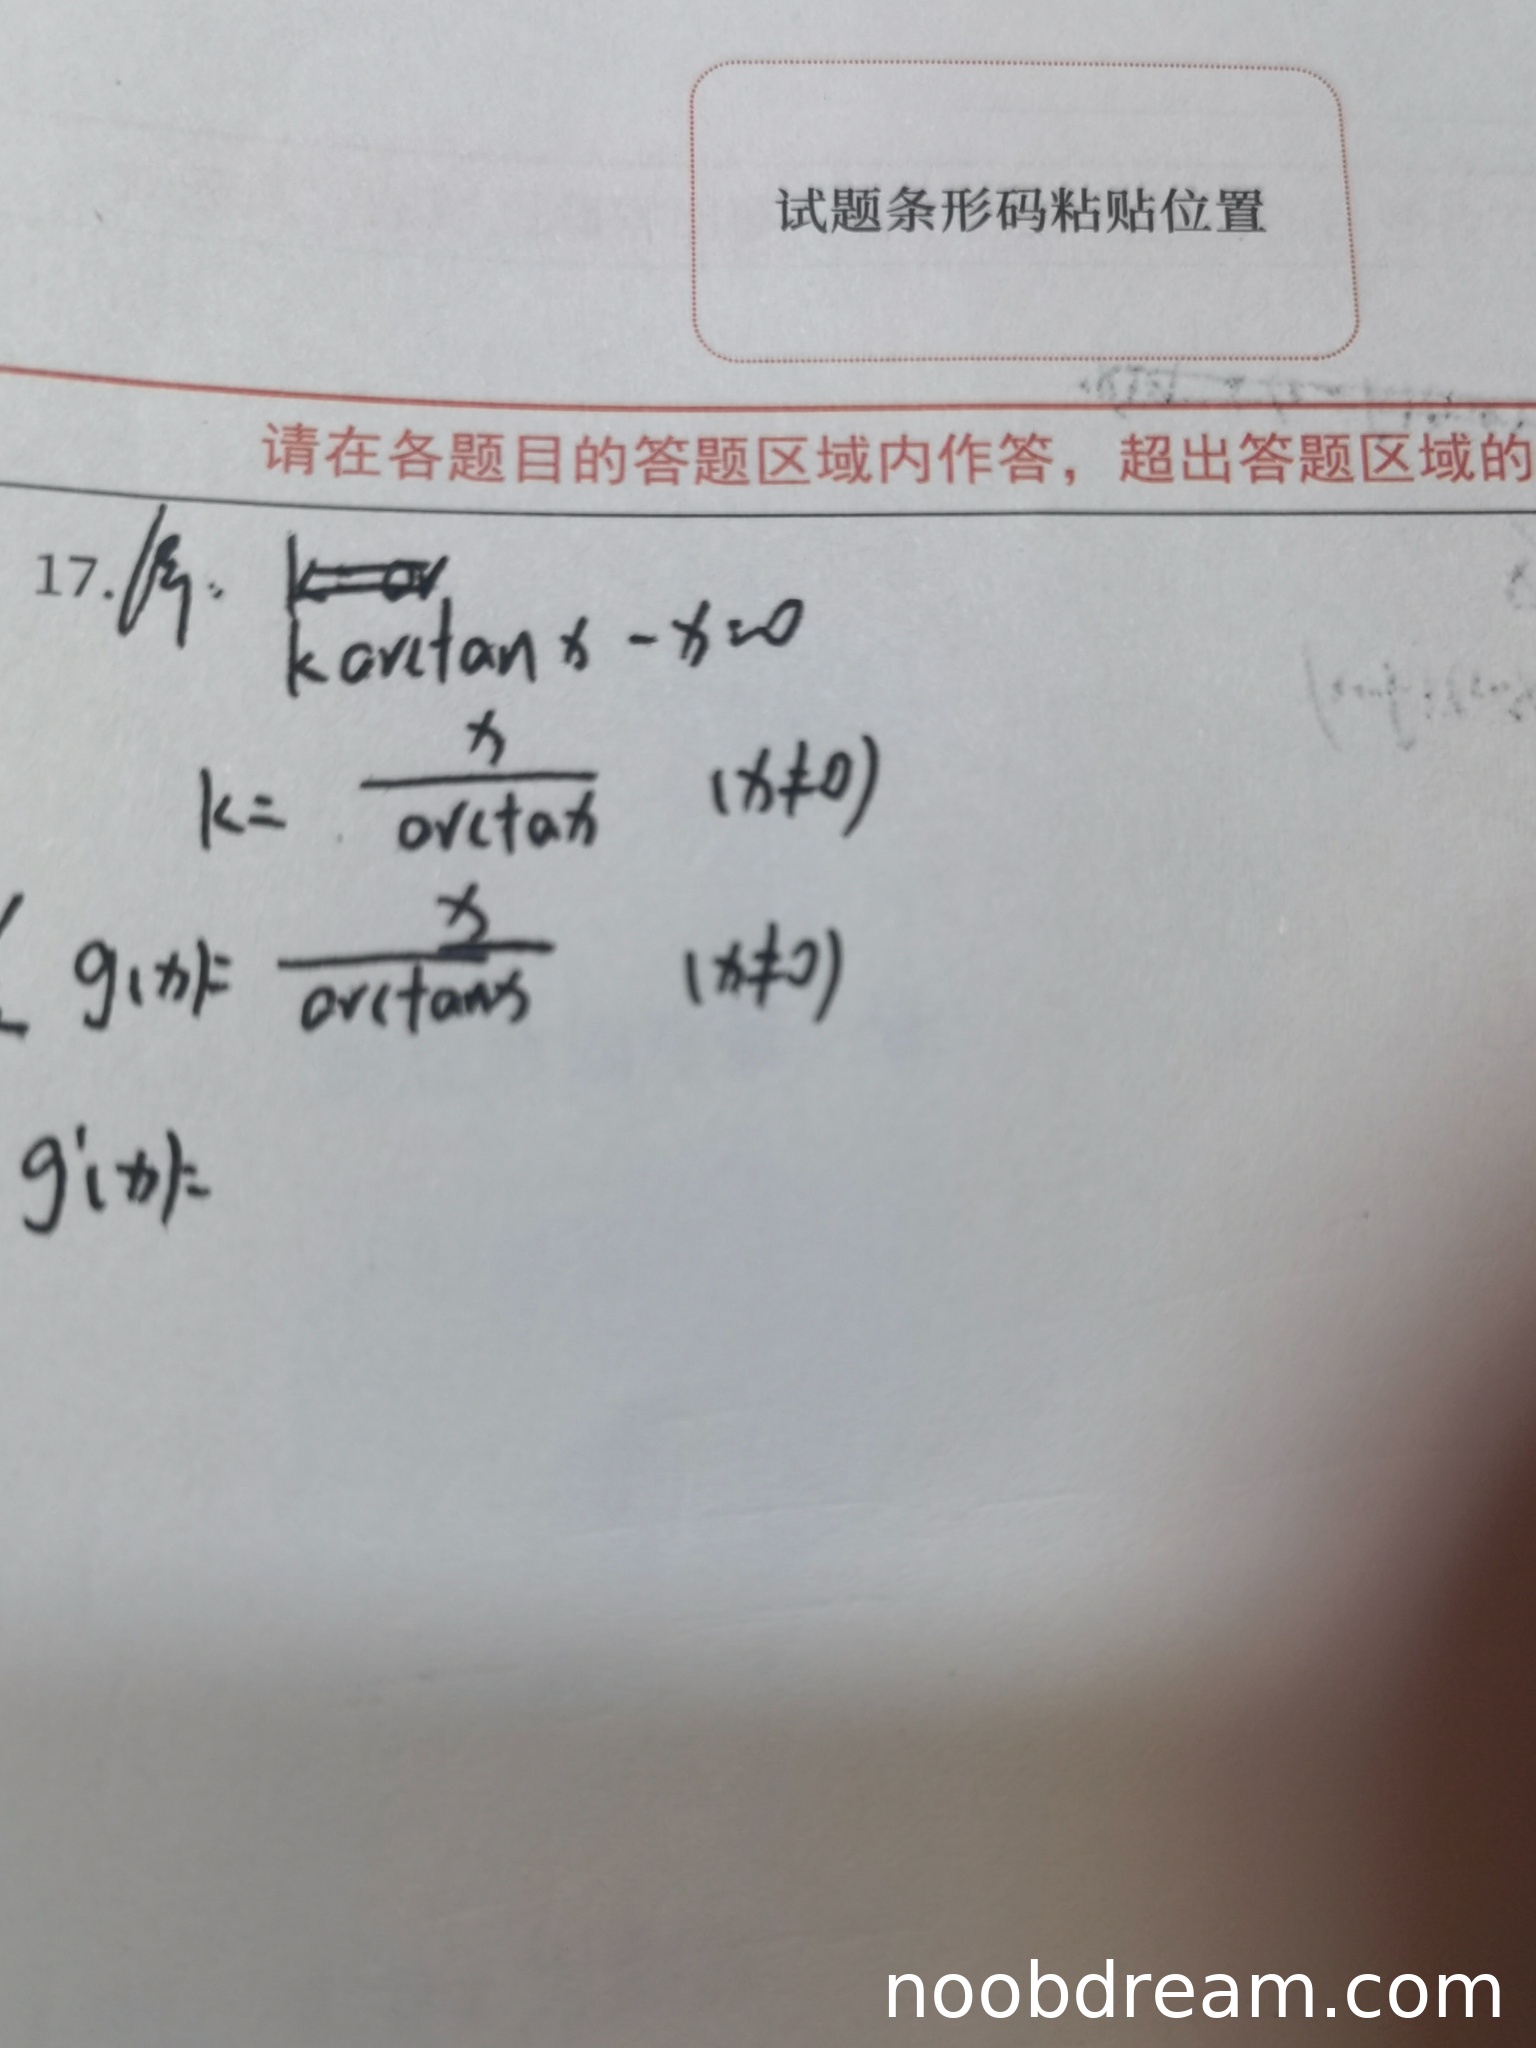 试题条形码粘贴位置
请在各题目的答题区域内作答，超出答题区域的
17. 解:
k arctan x - x = 0
k = x / arctax (x≠0)
g(x) = x / arctanx (x≠0)
g'(x) =
noobdream.com